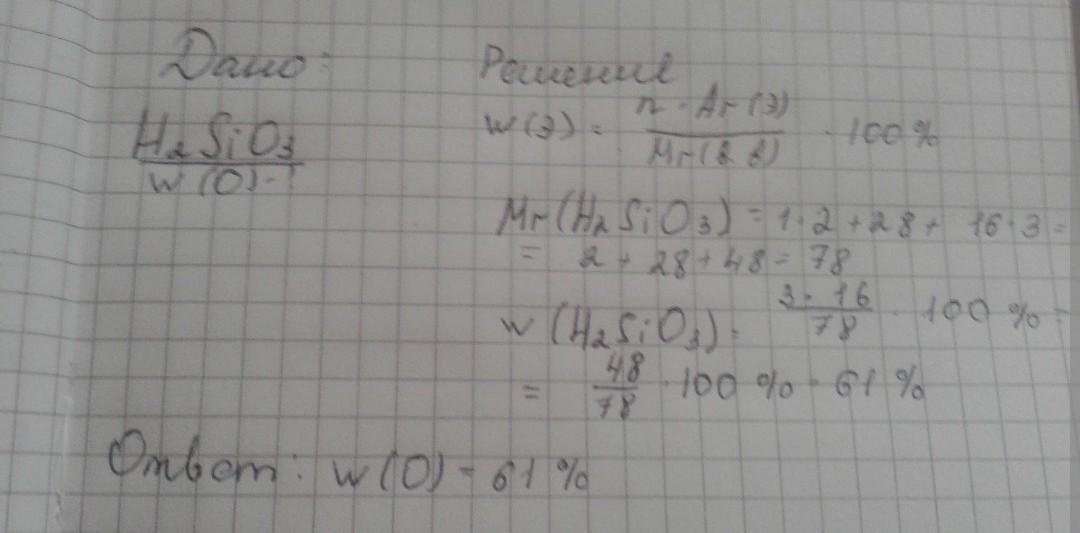 Дано:
H2SiO3
w(O)-?
Решение
w(Э) = n·Ar(Э) / Mr(в в) · 100%
Mr(H2SiO3) = 1·2+28+ 16·3=
= 2+28+48=78
w(H2SiO3)= 3·16 / 78 · 100%=
= 48 / 78 ·100%=61%
Ответ: w(O)=61%